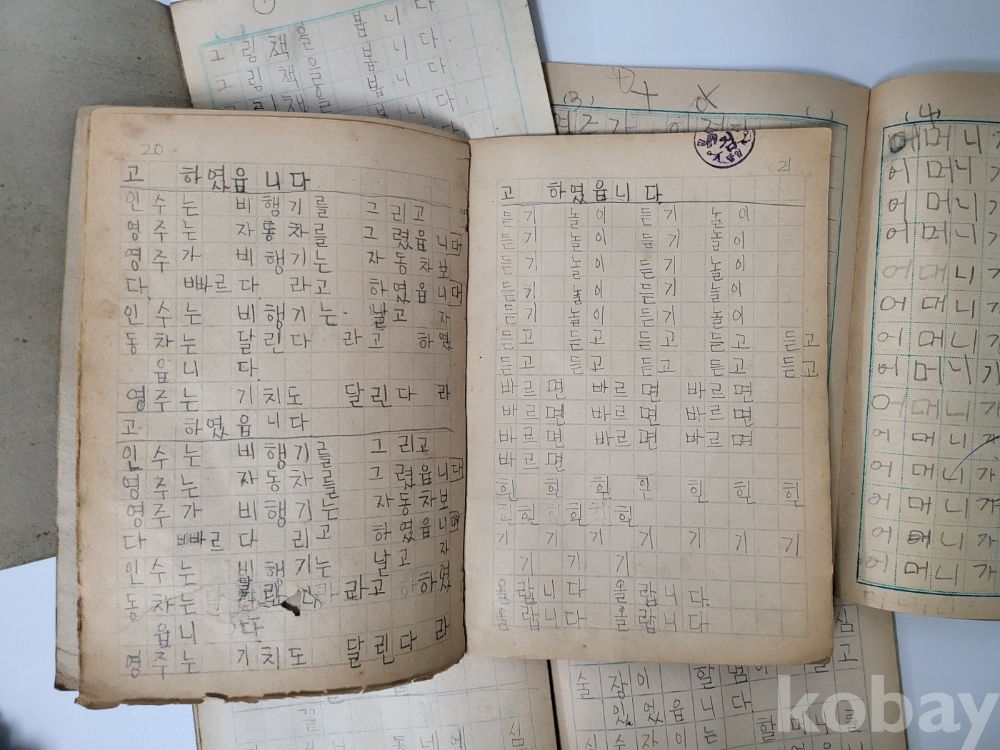 그림책을 봅니다
그림책을 봅니다.
그림책을 봅니다.
20
고 하였읍니다
인수는 비행기를 그리고
영주는 자동차를 그렸읍니다
영주가 비행기는 자동차보
다. 빠르다 라고 하였읍니다
인수는 비행기는. 날고 자
동차는 달린다 라고 하였
읍니다.
영주는 기치도 달린다 라
고 하였읍니다
인수는 비행기를 그리고
영주는 자동차를 그렸읍니다
영주가 비행기는 자동차보
다 빠르다 리고 하였읍니다
인수는 비해기는 날고 자
동차는 라고 하였
읍니다
영주는 기치도 달린다 라
21
고 하였읍니다.
듣기 놀이 듣기 놀이
듣기 놀이 듣기 놀이
듣기 놀이 듣기 놀이
듣기 놀이 듣기 놀이
듣기 놀이 듣기 놀이
듣고 듣고 듣고 듣고 듣고
듣고 듣고 듣고 듣고 듣고
바르면 바르면 바르면
바르면 바르면 바르면
바르면 바르면 바르면
바르면
흰 흰 흰 흰 흰 흰 흰
흰 흰 흰 흰
기 기 기 기 기 기 기
기 기 기
올랍니다 올랍니다.
올랍니다 올랍니다
(3)
(4)
어머니가
어머니가
어머니가
어머니가
어머니가
어머니가
어머니가
어머니가
어머니가
어머니가
어머니가
어머니가
어머니가
어머니가
동네에 심
심
술장이 할범이 고
있었읍니다
심수자이는 할머니를
kobay